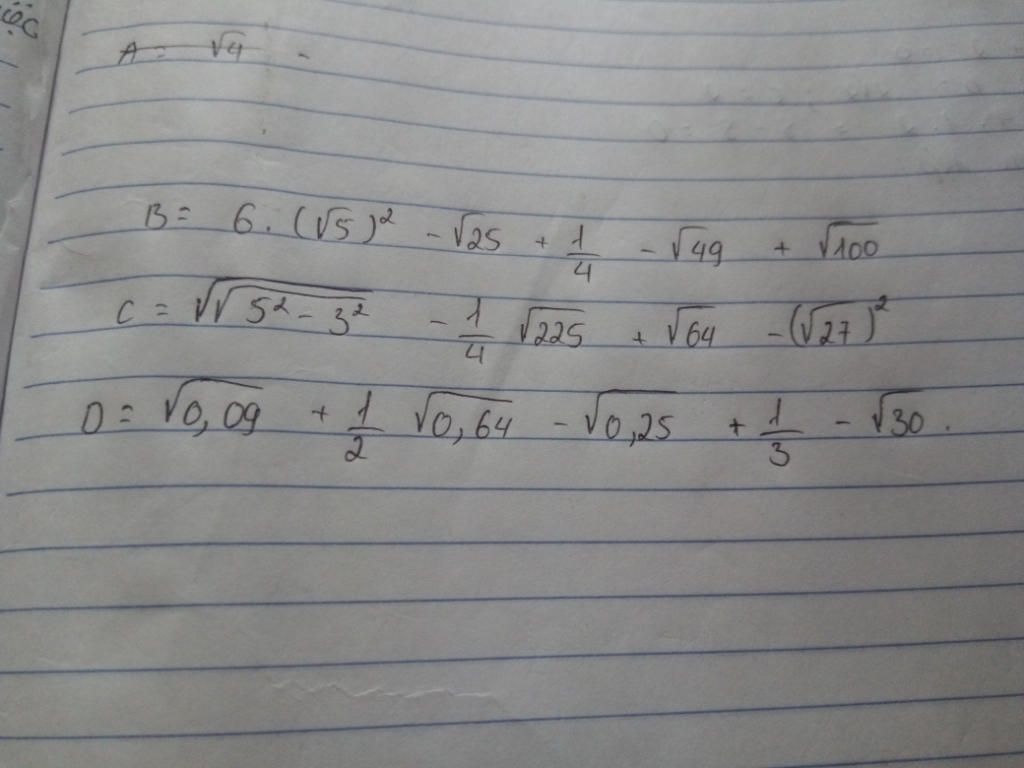 A = √4 -
B = 6 . (√5)² - √25 + 1/4 - √49 + √100
C = √√(5² - 3²) - 1/4 √225 + √64 - (√27)²
D = √0,09 + 1/2 √0,64 - √0,25 + 1/3 - √30 .